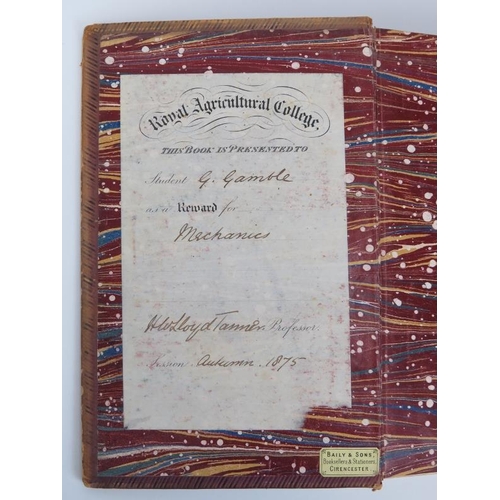 Royal Agricultural College.
THIS BOOK IS PRESENTED TO
Student G. Gamble
as a Reward for
Mechanics
H W Lloyd Tanner, Professor
Session Autumn 1875
BAILY & SONS,
Booksellers & Stationers,
CIRENCESTER